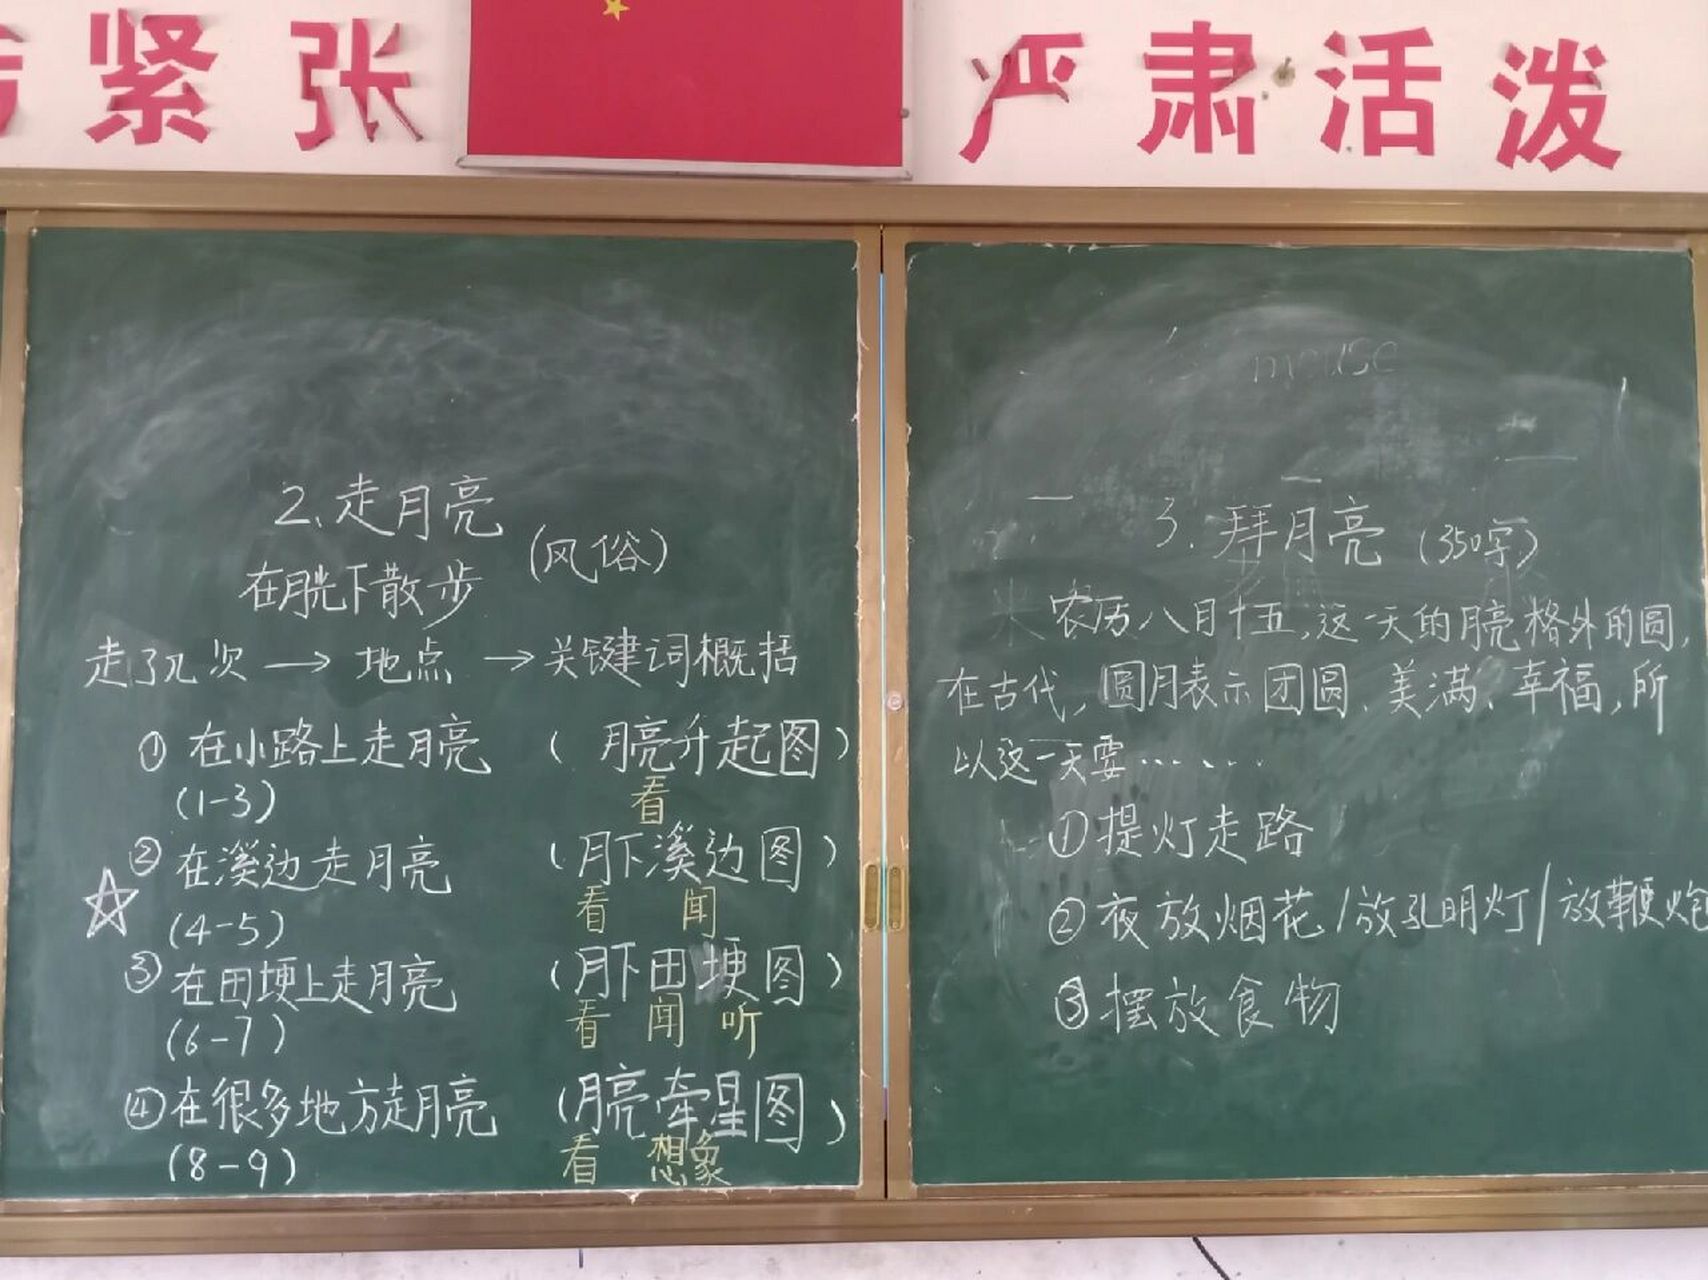 紧张
严肃活泼
2.走月亮
(风俗)
在月光下散步
走了几次→地点→关键词概括
①在小路上走月亮 (月亮升起图)
(1-3) 看
②在溪边走月亮 (月下溪边图)
(4-5) 看 闻
③在田埂上走月亮 (月下田埂图)
(6-7) 看 闻 听
④在很多地方走月亮 (月亮牵星图)
(8-9) 看 想象
mouse
3.拜月亮 (350字)
农历八月十五,这一天的月亮格外的圆,
在古代,圆月表示团圆、美满、幸福,所
以这一天要……
①提灯走路
②夜放烟花/放孔明灯/放鞭炮
③摆放食物